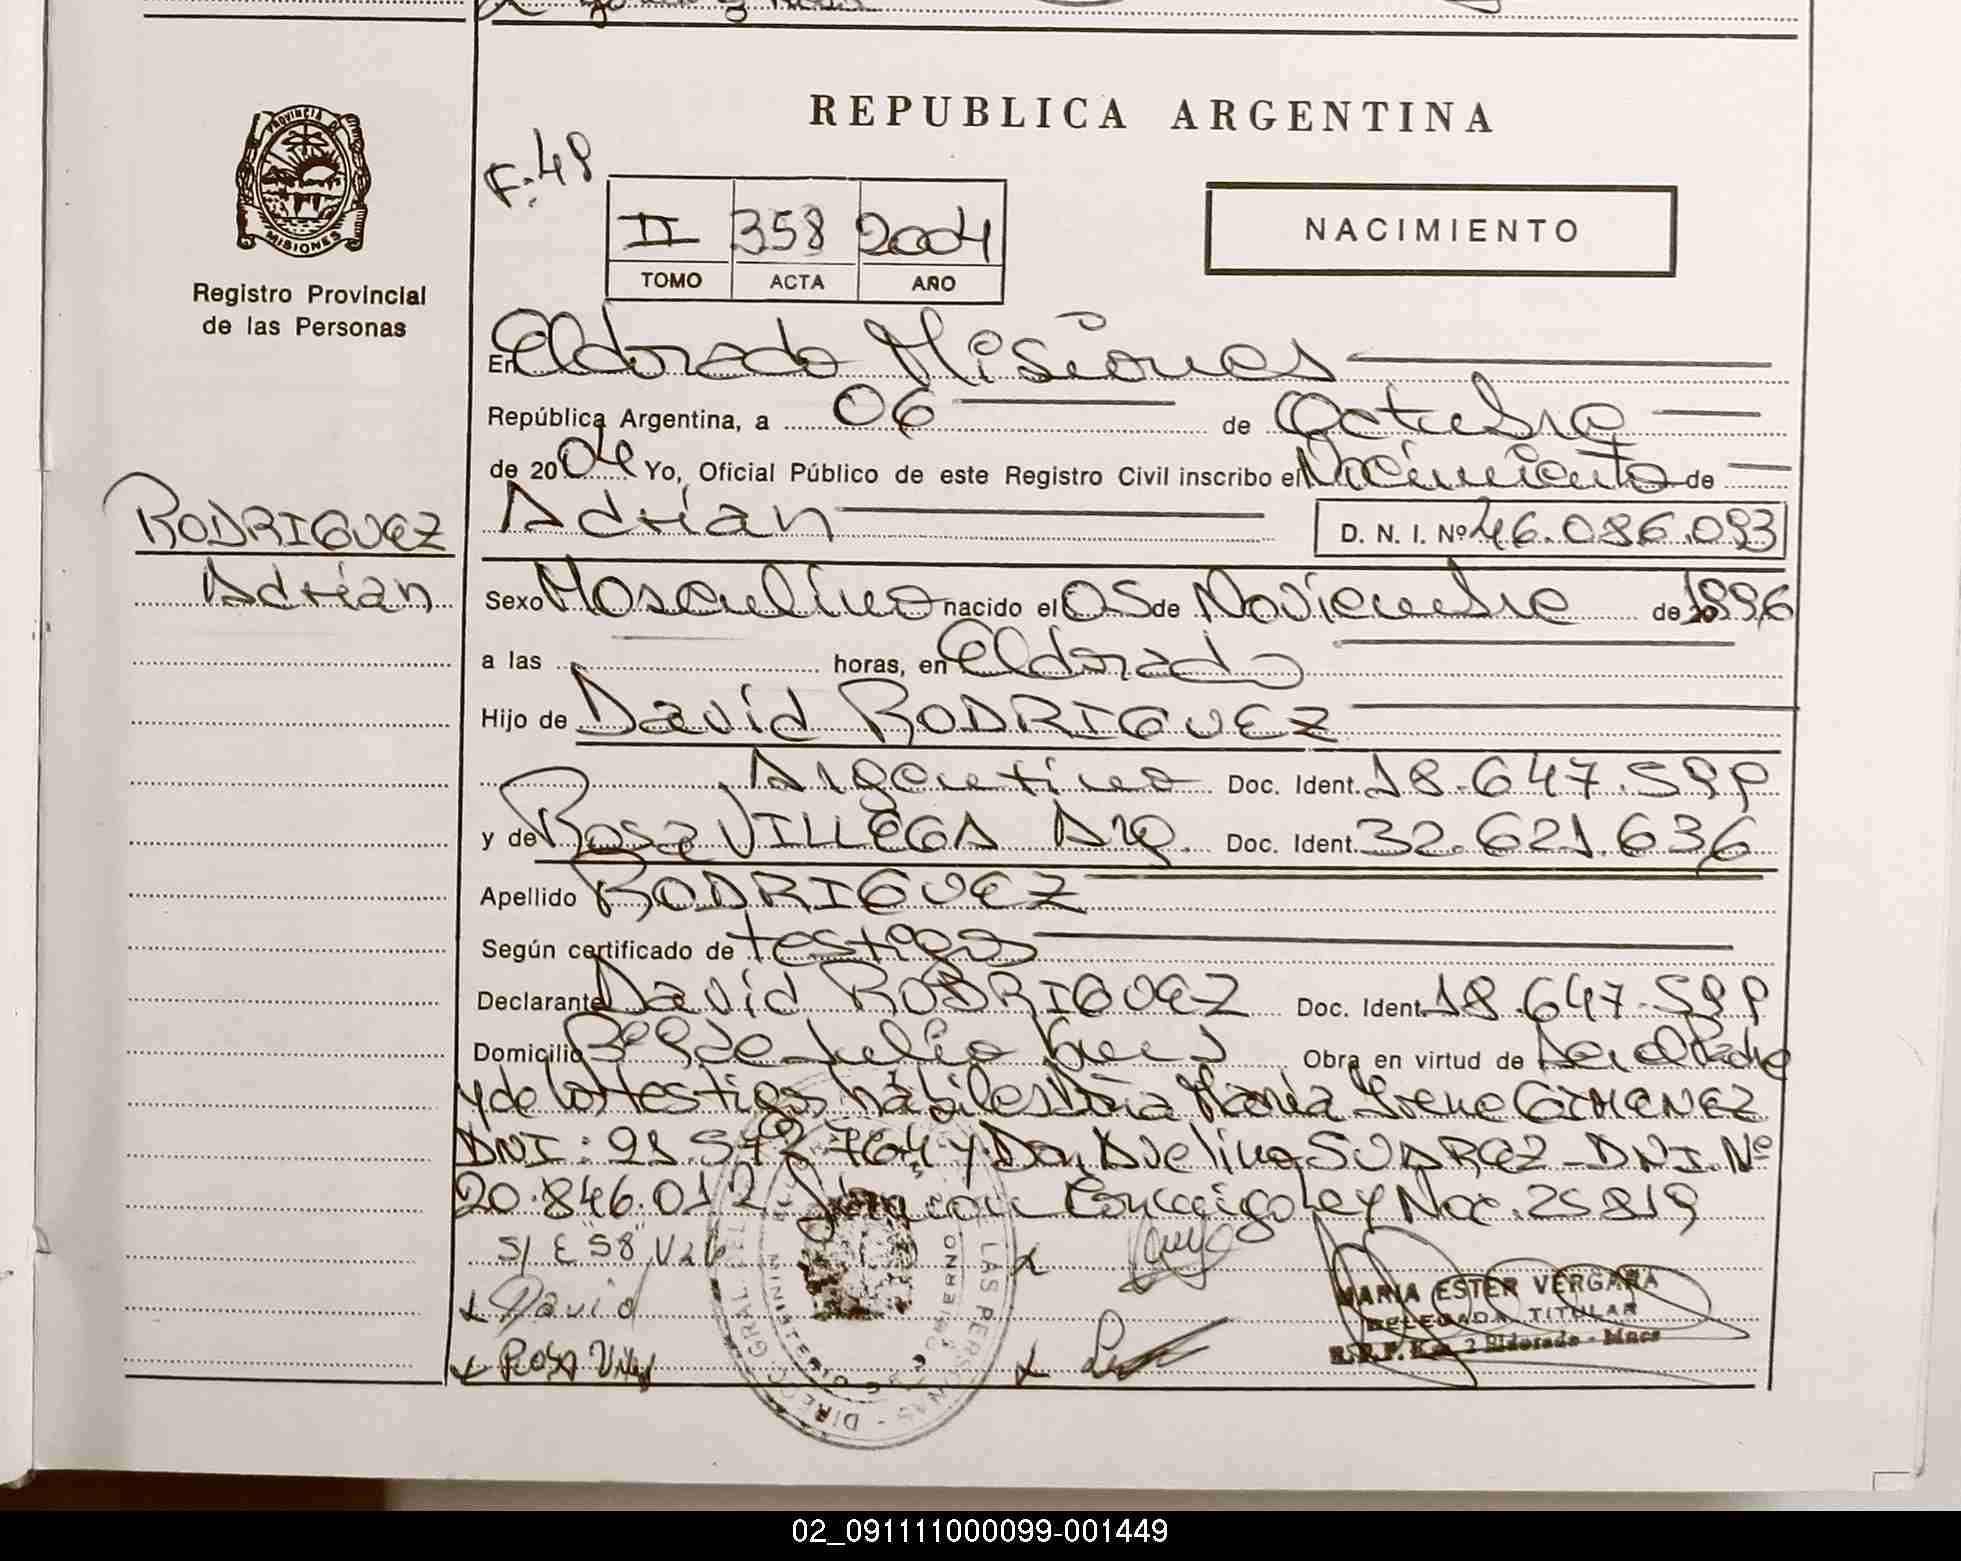 REPUBLICA ARGENTINA
PROVINCIA D
MISIONES
Registro Provincial
de las Personas
F: 48
II 358 2004
TOMO ACTA AÑO
NACIMIENTO
En Eldorado Misiones
República Argentina, a 06 de Octubre
de 2004 Yo, Oficial Público de este Registro Civil inscribo el Nacimiento de
Adrian D. N. I. Nº 46.086.093
RODRIGUEZ
Adrian
Sexo Masculino nacido el 05 de Noviembre de 1996
a las horas, en Eldorado
Hijo de David RODRIGUEZ
Argentino Doc. Ident. 18.647.599
y de Rosa VILLEGA Arg. Doc. Ident. 32.621.636
Apellido RODRIGUEZ
Según certificado de testigos
Declarante David RODRIGUEZ Doc. Ident. 18.647.599
Domicilio Bº 9 de Julio Obra en virtud de Ser el Padre
y de los testigos hábiles Doña María Irene GIMENEZ
DNI: 21.572.764 y Don Avelino SUAREZ - DNI. Nº
20.846.012 Ley Nac. 25819
S/ E 58 Vale
x David
x Rosa
x
x
MARIA ESTER VERGARA
DELEGADA TITULAR
R.P.P. Km. 2 Eldorado - Mnes
DIRECC GRAL LAS PERSONAS
MINISTERIO GOBIERNO
02_091111000099-001449